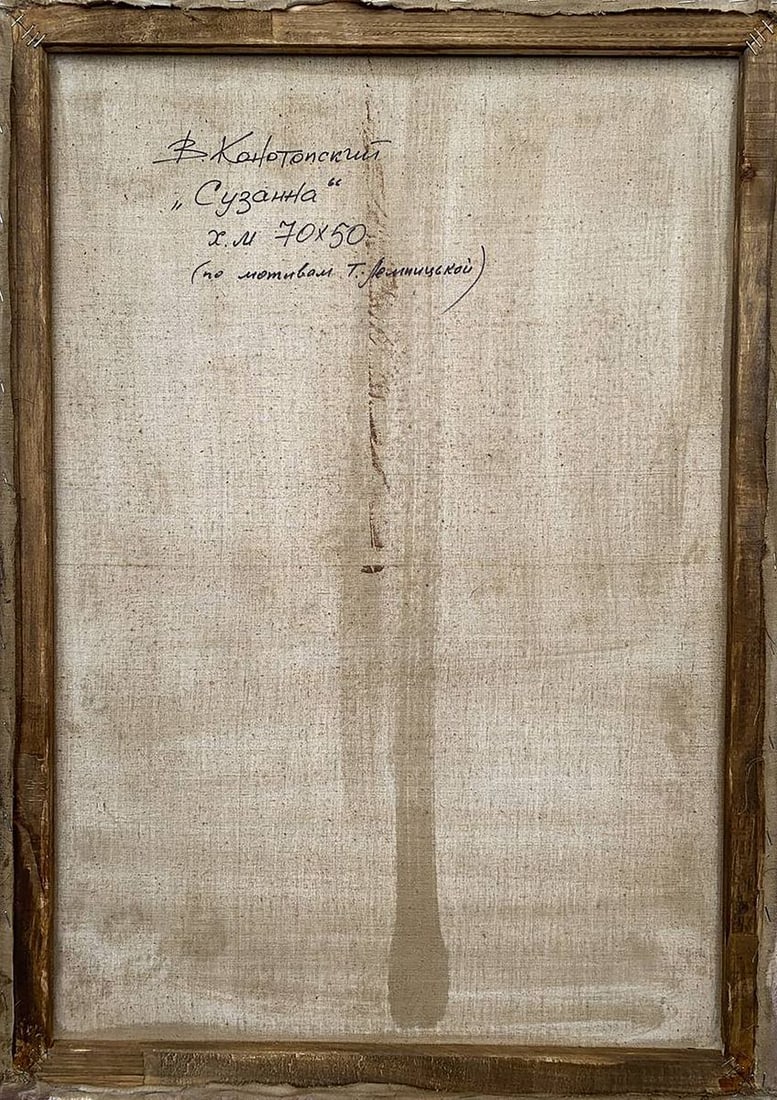 В Конотопский
„Сузанна“
х.м 70х50
(по мотивам Т. Лемпицькой)